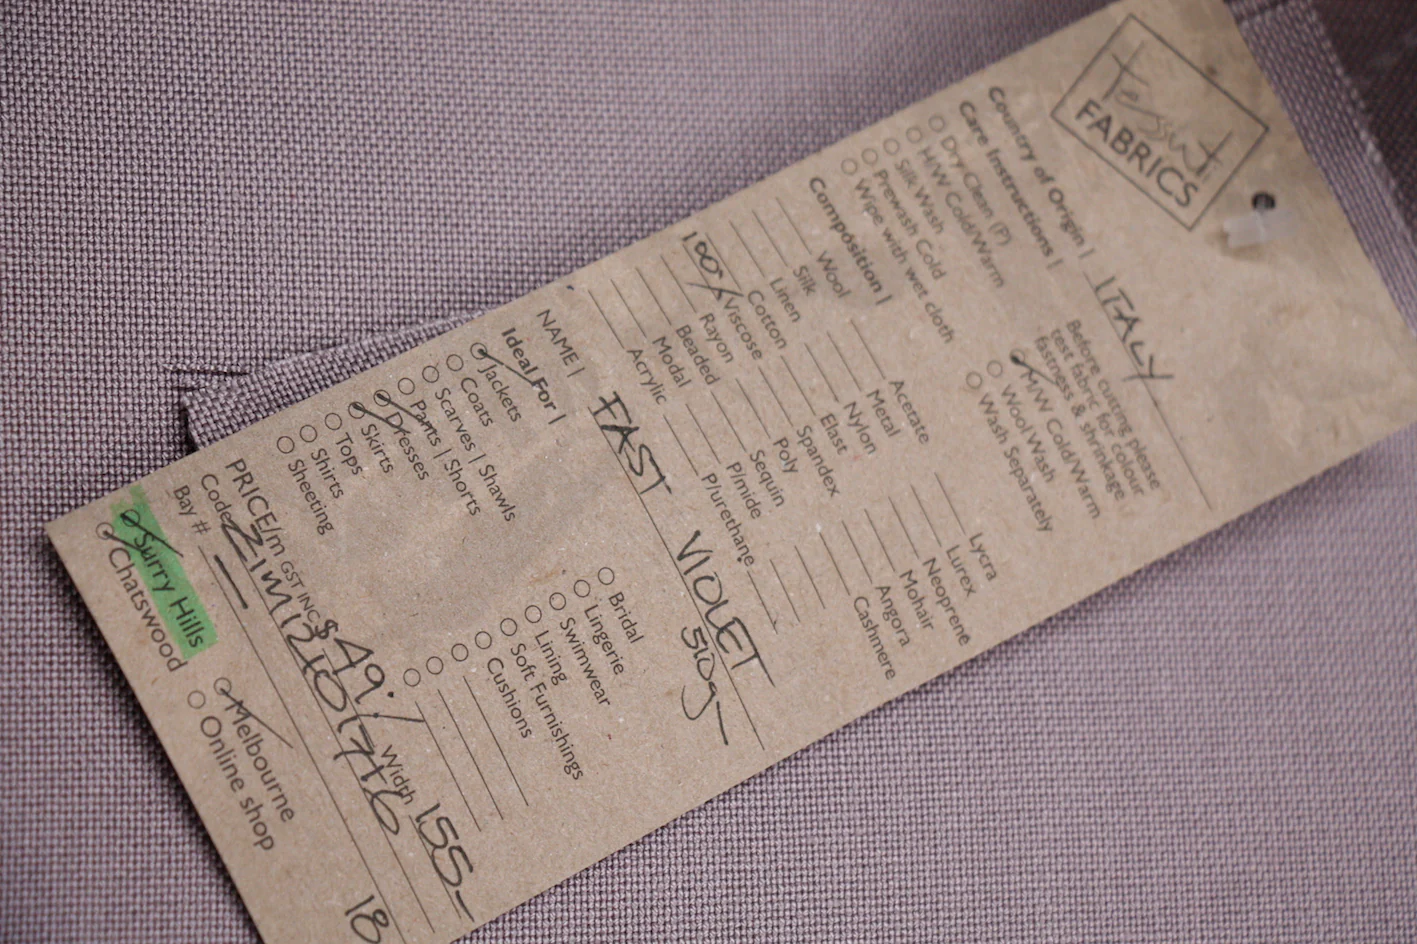 Tessuti
FABRICS
Country of Origin | ITALY
Care Instructions |
Before cutting please
test fabric for colour
fastness & shrinkage
Dry-Clean (P)
H/W Cold/Warm
Silk Wash
Prewash Cold
Wipe with wet cloth
M/W Cold/Warm
Wool Wash
Wash Separately
Composition |
Wool
Silk
Linen
Cotton
100% Viscose
Rayon
Beaded
Modal
Acrylic
Acetate
Metal
Nylon
Elast
Spandex
Poly
Sequin
P/mide
P/urethane
Lycra
Lurex
Neoprene
Mohair
Angora
Cashmere
NAME | FAST VIOLET
510g
Ideal For |
Jackets
Coats
Scarves | Shawls
Pants | Shorts
Dresses
Skirts
Tops
Shirts
Sheeting
Bridal
Lingerie
Swimwear
Lining
Soft Furnishings
Cushions
PRICE/m GST INC $49 Width 155
Code ZIM1210176
Bay # 18
Surry Hills
Chatswood
Melbourne
Online shop